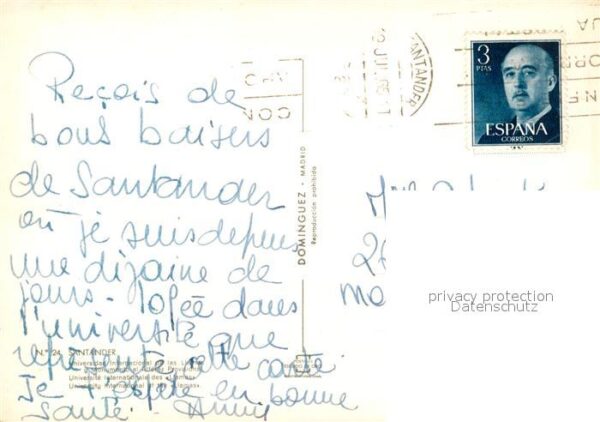 Reçois de
bons baisers
de Santander
où je suis depuis
une dizaine de
jours - logée dans
l'université que
représente cette carte
Je t'espère en bonne
santé - Annie
Nº 24. SANTANDER
Universidad Internacional de las Llamas
Université internationale des «Llamas».
University International of the «Llamas».
DOMINGUEZ - MADRID
Reproducción prohibida
SANTANDER
3
PTAS
ESPAÑA
CORREOS
CON
privacy protection
Datenschutz